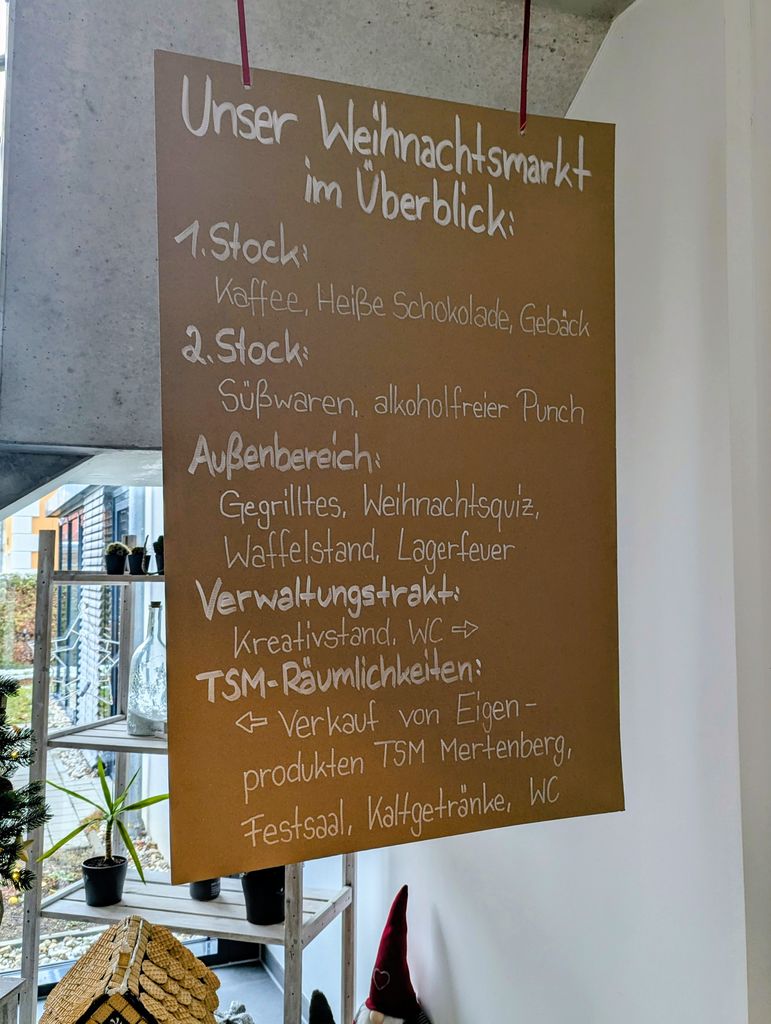 Unser Weihnachtsmarkt
im Überblick:
1. Stock:
Kaffee, Heiße Schokolade, Gebäck
2. Stock:
Süßwaren, alkoholfreier Punch
Außenbereich:
Gegrilltes, Weihnachtsquiz,
Waffelstand, Lagerfeuer
Verwaltungstrakt:
Kreativstand, WC ⇨
TSM-Räumlichkeiten:
⇦ Verkauf von Eigen-
produkten TSM Mertenberg,
Festsaal, Kaltgetränke, WC